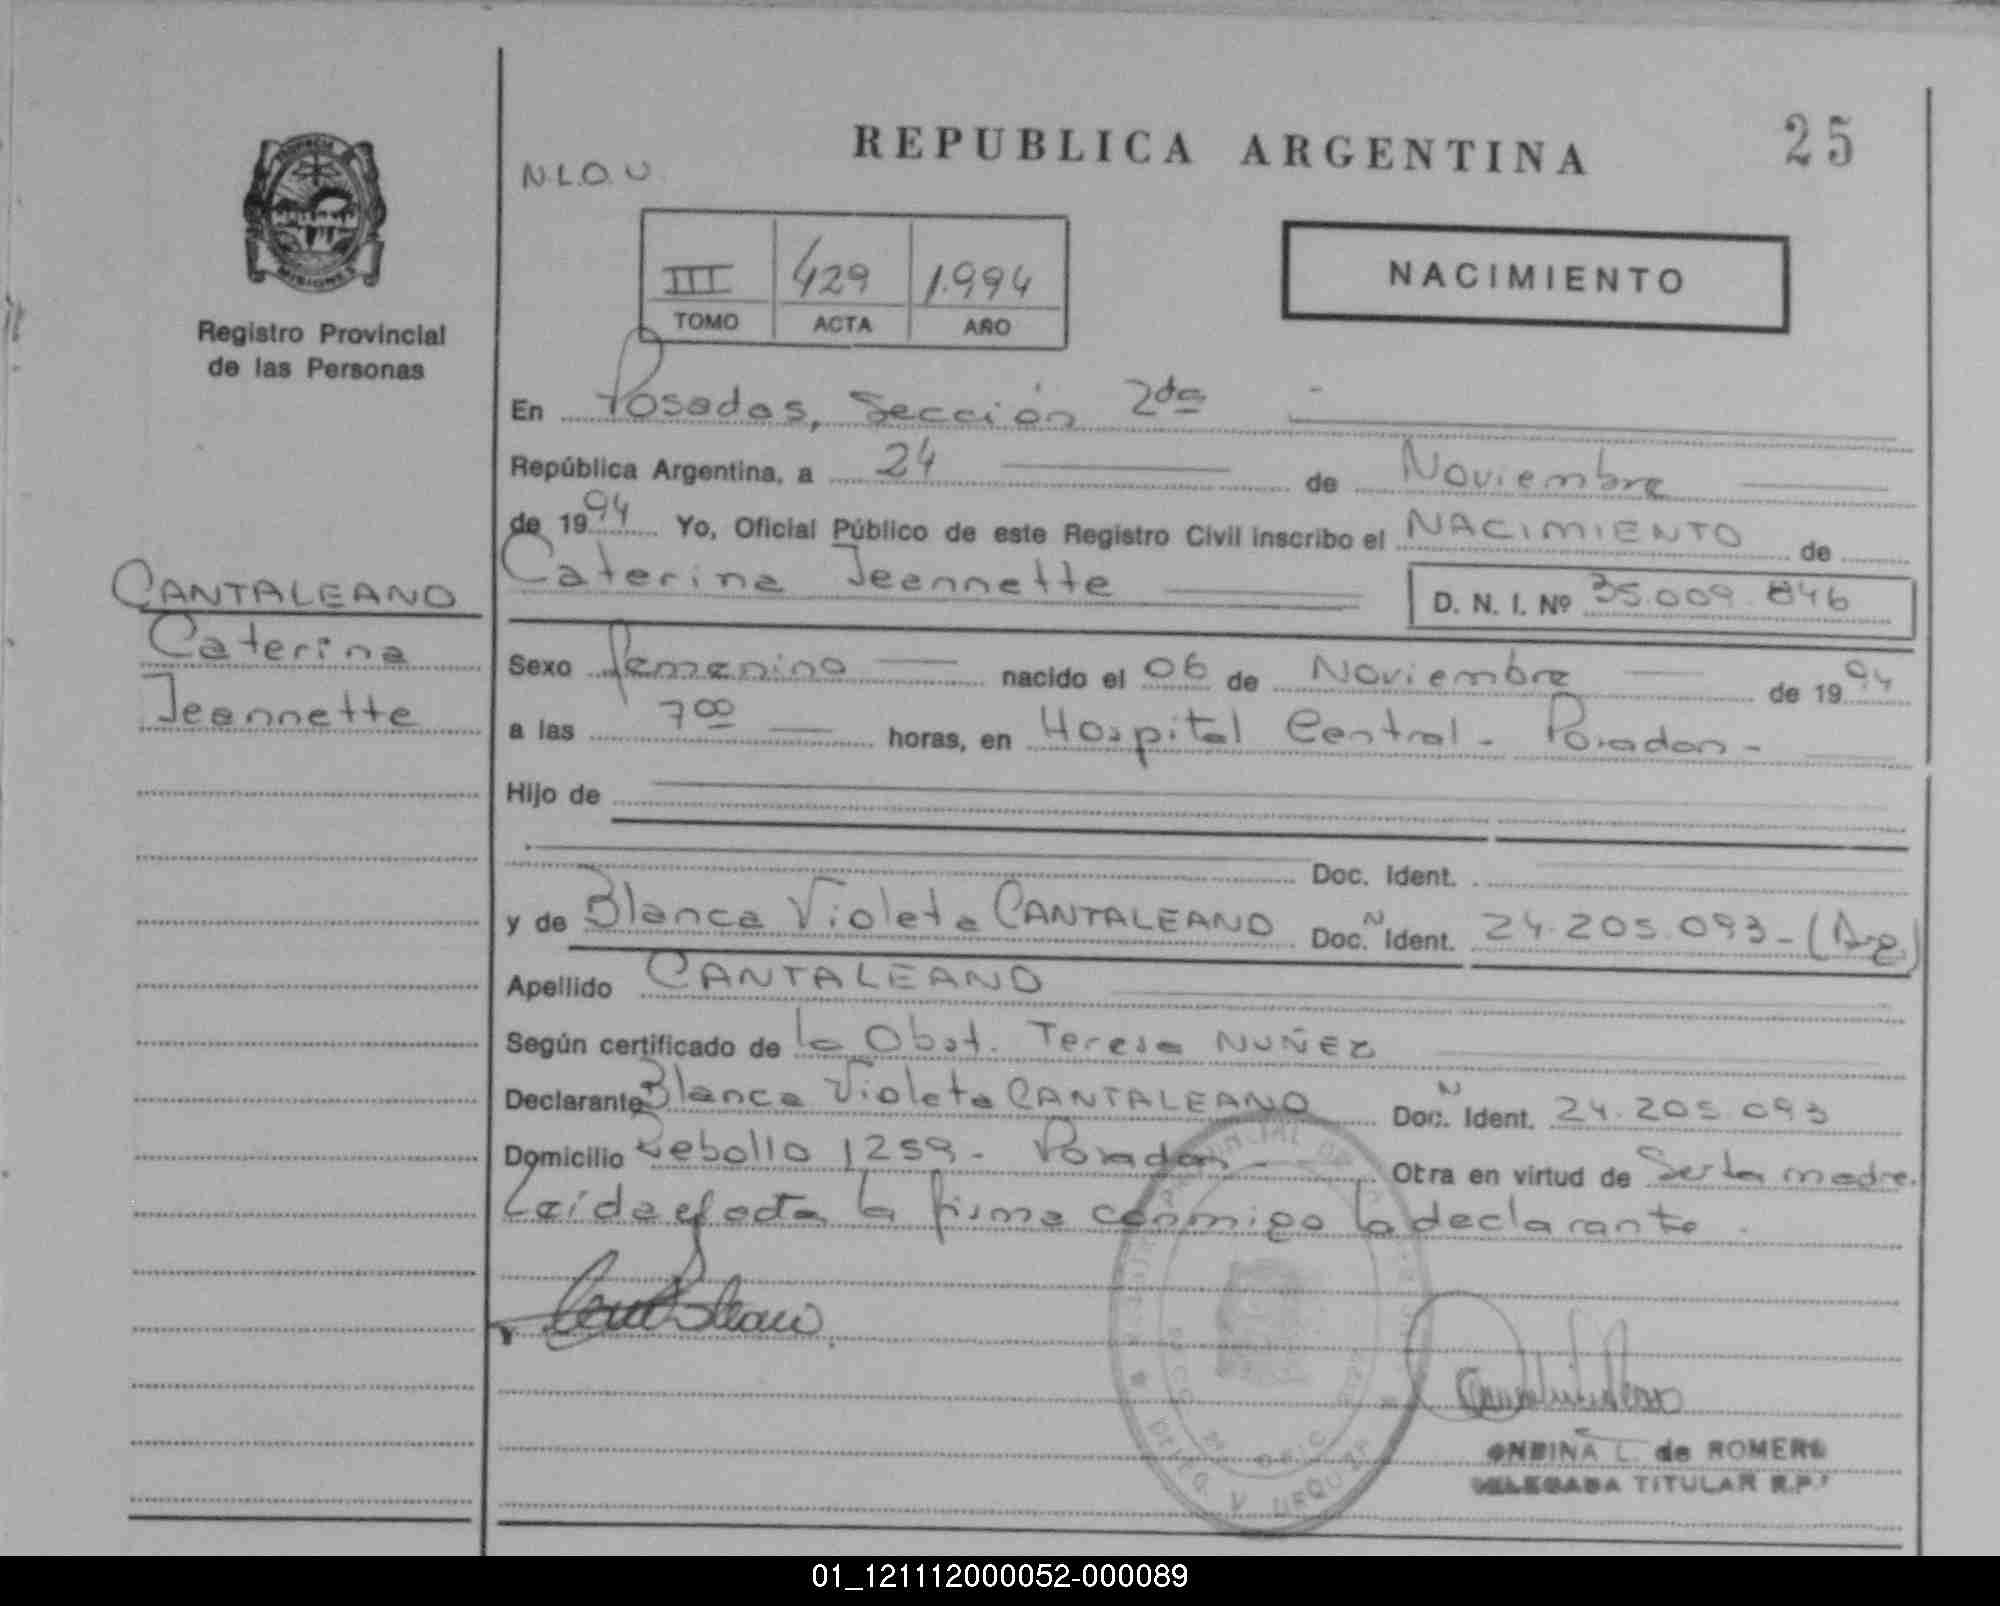 REPUBLICA ARGENTINA
25
N.L.O.U
NACIMIENTO
III 429 1.994
TOMO ACTA AÑO
PROVINCIA
MISIONES
Registro Provincial
de las Personas
En Posadas, Sección 2da
República Argentina, a 24 de Noviembre
de 1994 Yo, Oficial Público de este Registro Civil inscribo el NACIMIENTO de
Caterina Jeannette
D. N. I. Nº 35.009.846
CANTALEANO
Caterina
Jeannette
Sexo femenino nacido el 06 de Noviembre de 1994
a las 7 00 horas, en Hospital Central - Posadas -
Hijo de
Doc. Ident.
y de Blanca Violeta CANTALEANO Doc. N Ident. 24.205.093 - (Arg.)
Apellido CANTALEANO
Según certificado de la Obst. Teresa NUÑEZ
Declarante Blanca Violeta CANTALEANO Doc. N Ident. 24.205.093
Domicilio Rebollo 1259 - Posadas - Otra en virtud de Ser la madre.
Leída efecta la firma conmigo la declarante.
ONDINA L. de ROMERO
DELEGADA TITULAR R.P.
01_121112000052-000089